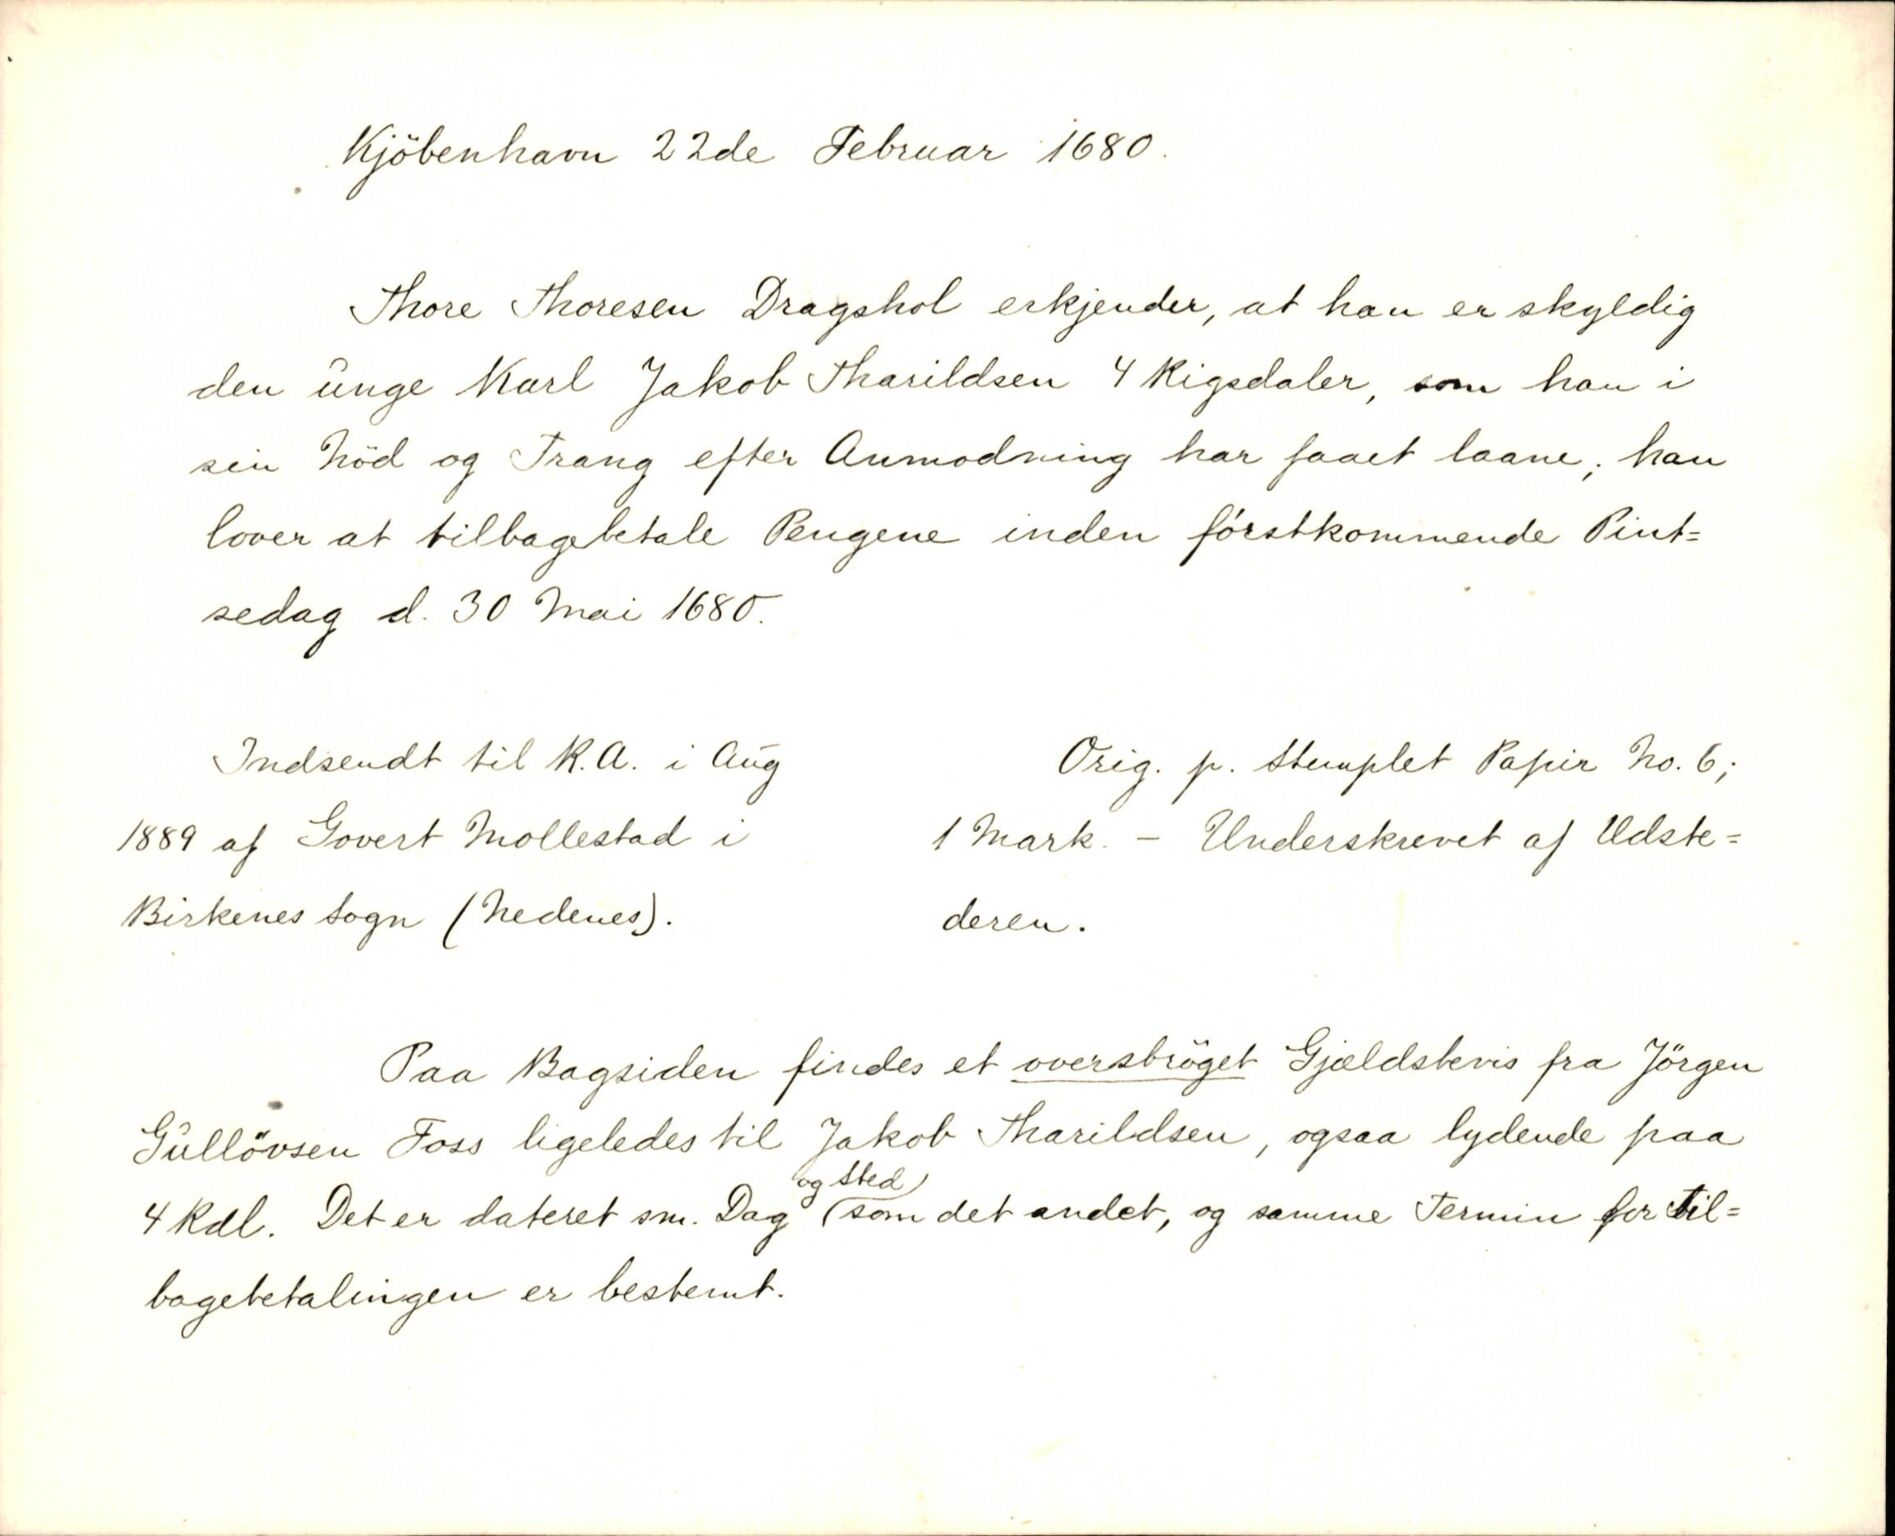 Kjöbenhavn 22de Februar 1680.
Thore Thoresen Dragshol erkjender, at han er skyldig
den unge Karl Jakob Tharildsen 4 Rigsdaler, som han i
sin Nöd og Trang efter Anmodning har faaet laane; han
lover at tilbagebetale Pengene inden förstkommende Pint=
sedag d. 30 Mai 1680.
Indsendt til R.A. i Aug
1889 af Govert Mollestad i
Birkenes Sogn (Nedenes).
Orig. p. stemplet Papir No. 6;
1 Mark. - Underskrevet af Udste=
deren.
Paa Bagsiden findes et overströget Gjældsbevis fra Jörgen
Gullövsen Foss ligeledes til Jakob Tharildsen, ogsaa lydende paa
4 Rdl. Det er dateret sm. Dag og Sted som det andet, og samme Termin for Til=
bagebetalingen er bestemt.